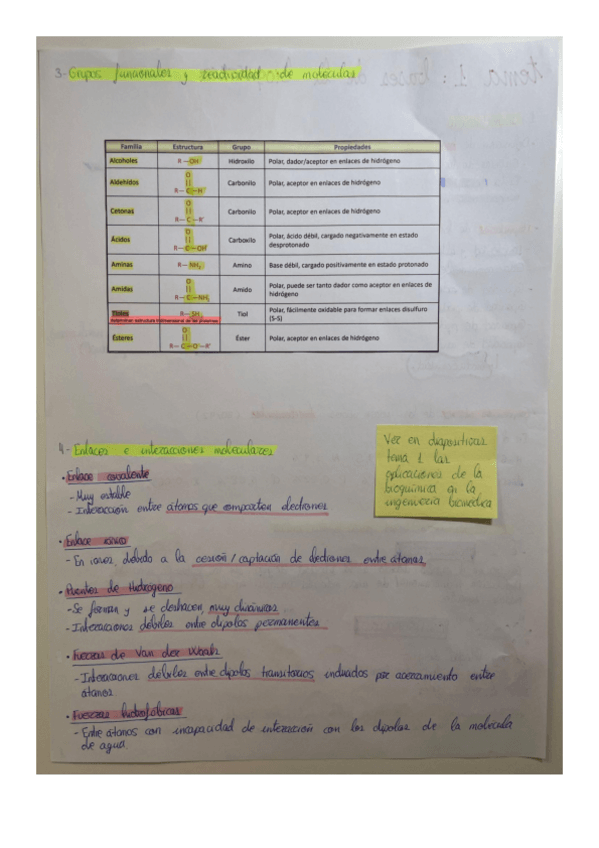 3- Grupos funcionales y reactividad de moleculas
Familia Estructura Grupo Propiedades
Alcoholes R—OH Hidroxilo Polar, dador/aceptor en enlaces de hidrógeno
Aldehídos O || R—C—H Carbonilo Polar, aceptor en enlaces de hidrógeno
Cetonas O || R—C—R' Carbonilo Polar, aceptor en enlaces de hidrógeno
Ácidos O || R—C—OH Carboxilo Polar, ácido débil, cargado negativamente en estado
desprotonado
Aminas R—NH2 Amino Base débil, cargado positivamente en estado protonado
Amidas O || R—C—NH2 Amido Polar, puede ser tanto dador como aceptor en enlaces de
hidrógeno
Tioles R—SH Tiol Polar, fácilmente oxidable para formar enlaces disulfuro
(S-S)
estructura tridimensional de las proteínas
Ésteres O || R—C—O—R' Éster Polar, aceptor en enlaces de hidrógeno
4- Enlaces e interacciones moleculares
· Enlace covalente
- Muy estable
- Interacción entre átomos que comparten electrones
· Enlace iónico
- En iones, debido a la cesión/captación de electrones entre átomos
· Puentes de Hidrógeno
- Se forman y se deshacen, muy dinámicos
- Interacciones débiles entre dipolos permanentes
· Fuerzas de Van der Waals
- Interacciones débiles entre dipolos transitorios inducidos por acercamiento entre
átomos.
· Fuerzas hidrofóbicas
- Entre átomos con incapacidad de interacción con los dipolos de la molécula
de agua.
Ver en diapositivas
tema 1 las
aplicaciones de la
bioquímica en la
ingeniería biomédica